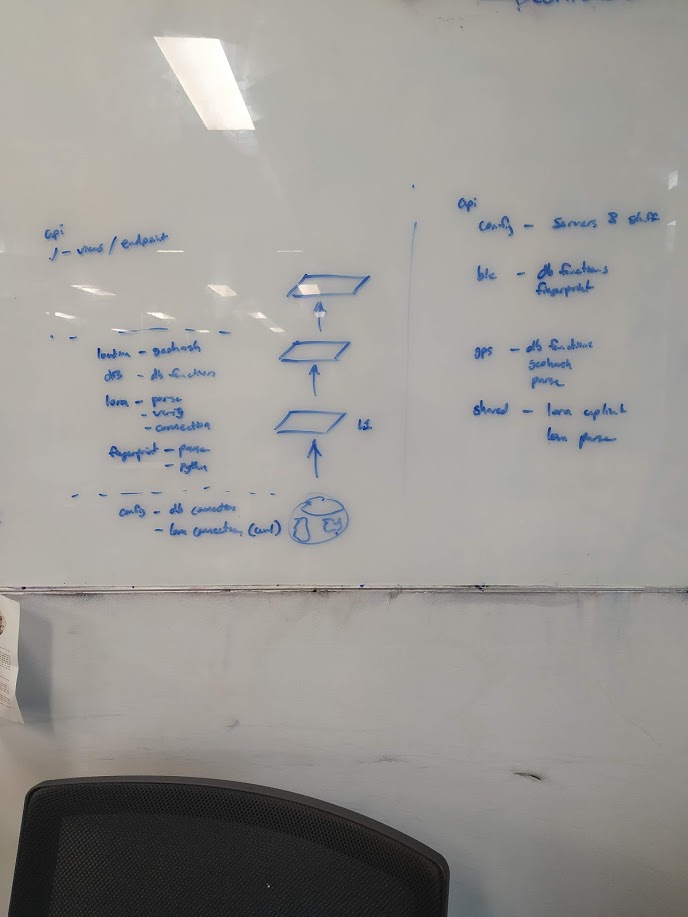 api
./ - views / endpoint
location - geohash
db - db functions
lora - parse
- verify
- connection
fingerprint - parse
- python
config - db connection
- lora connection (curl)
L1
api
config - servers & stuff
ble - db functions
fingerprint
gps - db functions
geohash
parse
shared - lora uplink
lora parse